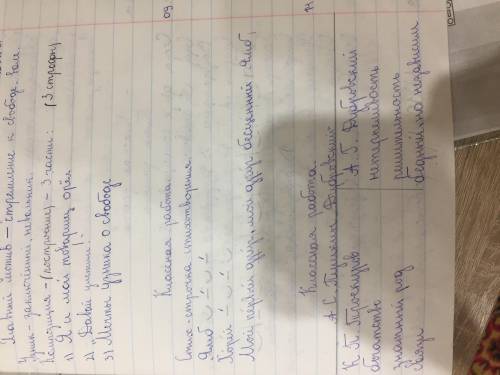 мотив – стремление к свободе – воле.
Узник – заключённый, невольник.
Композиция – (построение) – 3 части: (3 строфы)
1) Я и мой товарищ орёл
2) „Давай улетим!“
3) Мечты узника о свободе
09.
Классная работа.
Стих – строчка стихотворения.
Ямб ◡ – ◡ –
Хорей – ◡ – ◡
Мой первый друг, мой друг бесценный Ямб
14
Классная работа.
А. С. Пушкин „Дубровский“
К. П. Троекуров
А. Г. Дубровский
богатство
нетерпеливость
знатный род
решительность
связи
бедный, но независим